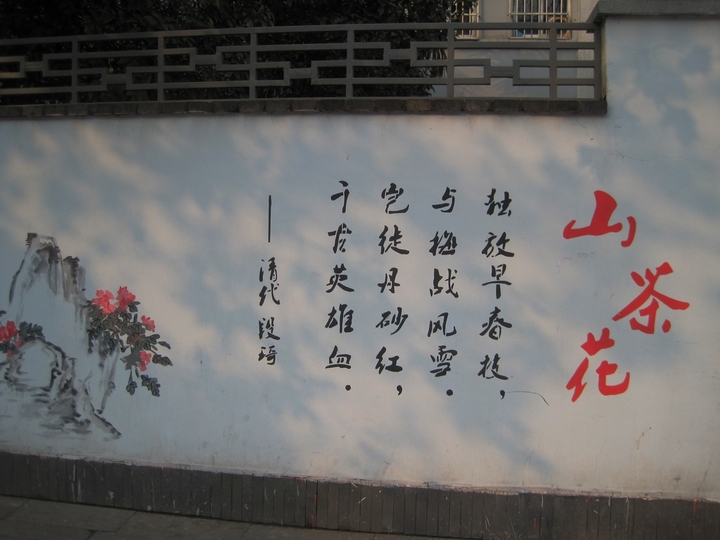 山茶花
独放早春枝，
与梅战风雪。
岂徒丹砂红，
千古英雄血。
——清代 段琦